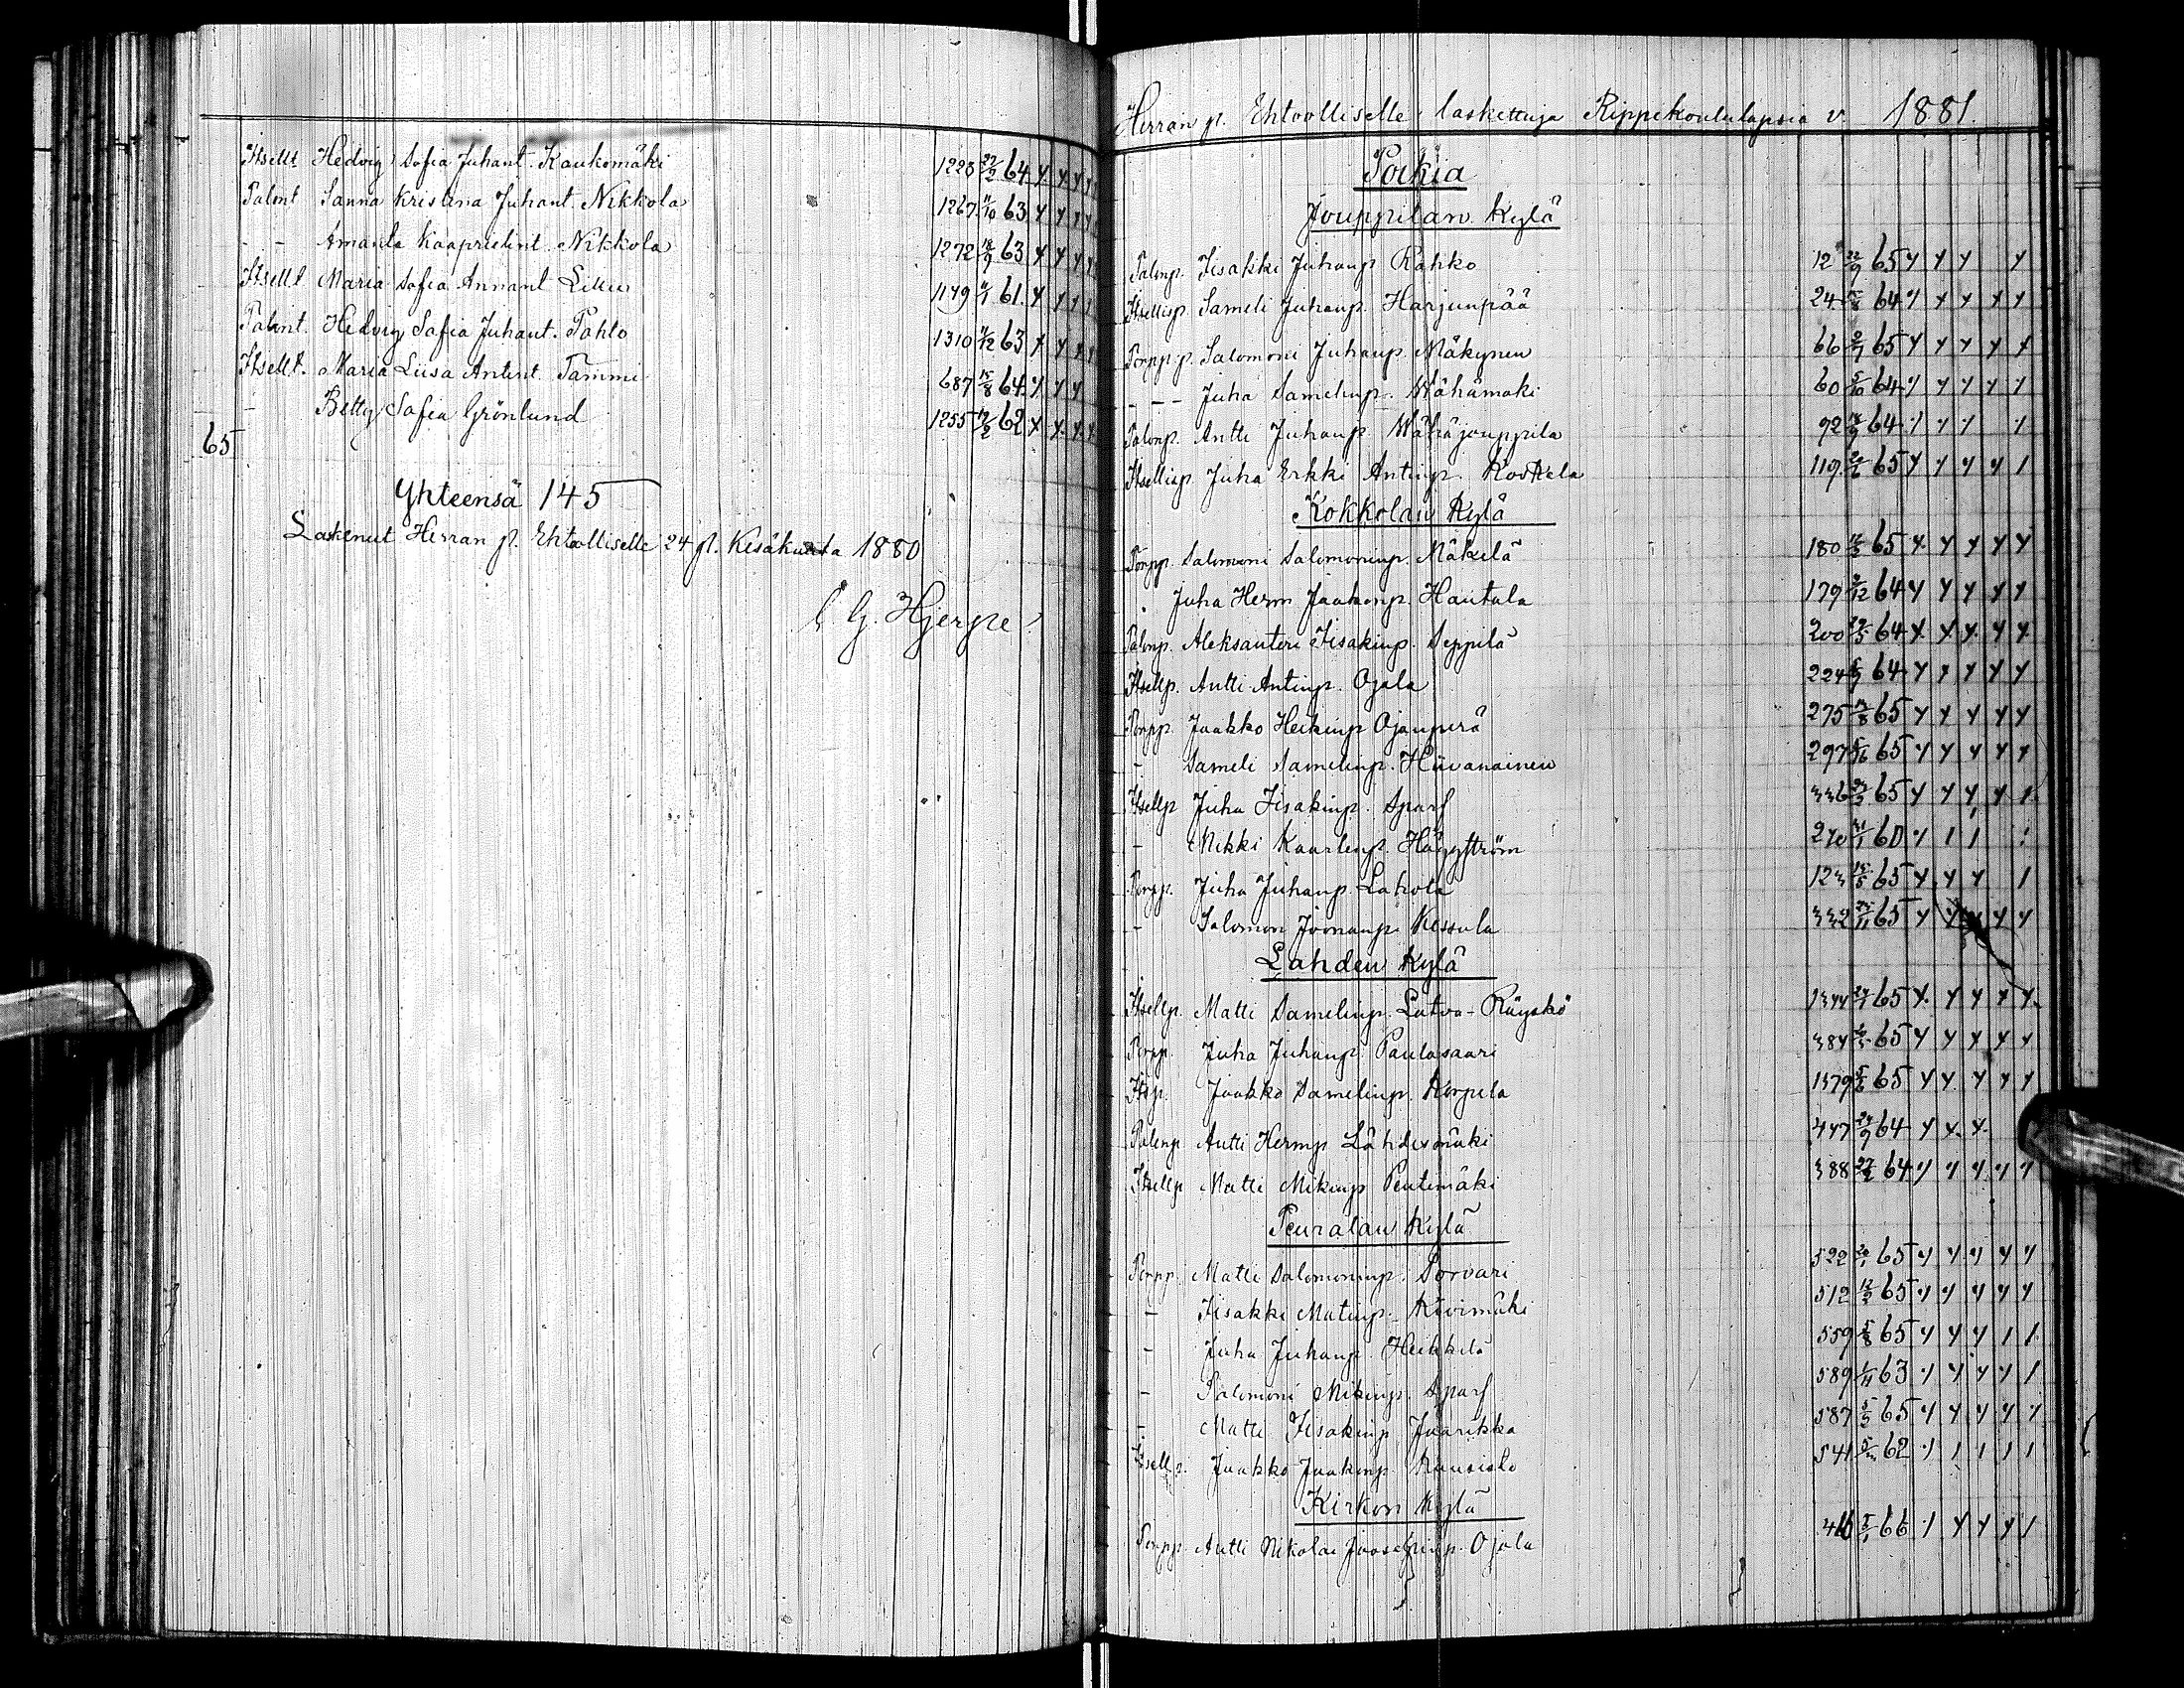 Itsellt Hedvig Sofia Juhant. Kaukomäki 1223 22/2 64 y y y y
Talont Sanna Kristina Juhant. Nikkola 1267 4/10 63 y y y y
- - Amanda Kaaprielint. Nikkola 1272 18/9 63 y y y y
Itsellt Maria Sofia Annant 1179 61. y y y y
Talont. Hedvig Sofia Juhant. Pohto 1310 4/12 63 y y y y
Itsellt. Maria Liisa Antint. Tammi 687 15/8 64 y y y
- Betty Sofia Grönlund 1255 12/2 62 y y y y
65
Yhteensä 145
Laskenut Herran p. Ehtoolliselle 24 p. Kesäkuuta 1880
C. G. Hjerpe
Herran p. Ehtoolliselle laskettuja Rippikoululapsia v. 1881.
Poikia
Jouppilan Kylä
Talonp. Iisakki Juhanp. Rahko 12 22/9 65 y y y y
Itsellisp. Sameli Juhanp. Harjunpää 24 64 y y y y y
Torpp. p. Salomoni Juhanp. Mäkynen 66 2/7 65 y y y y y
- - - Juha Samelinp. Wähämäki 60 5/10 64 y y y y y
Talonp. Antti Juhanp. Wähäjouppila 92 18/9 64 y y y y
Itsellisp Juha Erkki Antinp. Koskela 119 65 y y y y 1
Kokkolan Kylä
Torpp. Salomoni Salomoninp. Mäkelä 180 12/3 65 y y y y y
- Juha Herm Jaakonp. Hautala 179 2/12 64 y y y y y
Talonp. Aleksanteri Iisakinp. Seppilä 200 29/5 64 y y y y y
Itsellp. Antti Antinp. Ojala 224 64 y y y y y
Torpp. Jaakko Heikinp Ojanperä 275 14/8 65 y y y y y
- Sameli Samelinp. Hiivanainen 297 65 y y y y y
Itsellp Juha Iisakinp. Sparf 336 65 y y y y 1
- Mikki Kaarlenp. Häggström 270 31/1 60 y 1 1 1
Torpp. Juha Juhanp. Lahola 123 15/5 65 y y y 1
- Salomon Joonanp. Kessula 332 25/11 65 y y y y y
Lahden Kylä
Itsellp. Matti Samelinp. Latva-Räyskö 1344 65 y y y y y
Torpp. Juha Juhanp. Paulasaari 384 65 y y y y y
Itsp. Jaakko Samelinp. Korpela 1379 65 y y y y y
Talonp Antti Hermp Lähdesmäki 447 29/9 64 y y y
Itsellp Matti Mikinp Pentimäki 388 27/2 64 y y y y y
Peuralan Kylä
Torpp. Matti Salomoninp. Porvari 522 65 y y y y y
- Iisakki Matinp. Kivimäki 512 12/3 65 y y y y y
- Juha Juhanp. Heikkilä 559 5/8 65 y y y 1 1
- Salomoni Mikinp. Sparf 589 1/11 63 y y y y 1
- Matti Iisakinp Jaarikka 587 5/3 65 y y y y y
Itsellp. Jaakko Jaakonp. Kuusisto 541 62 y 1 1 1 1
Kirkon Kylä
Torpp. Antti Nikolai Joosepinp. Ojala 416 5/1 66 y y y y 1